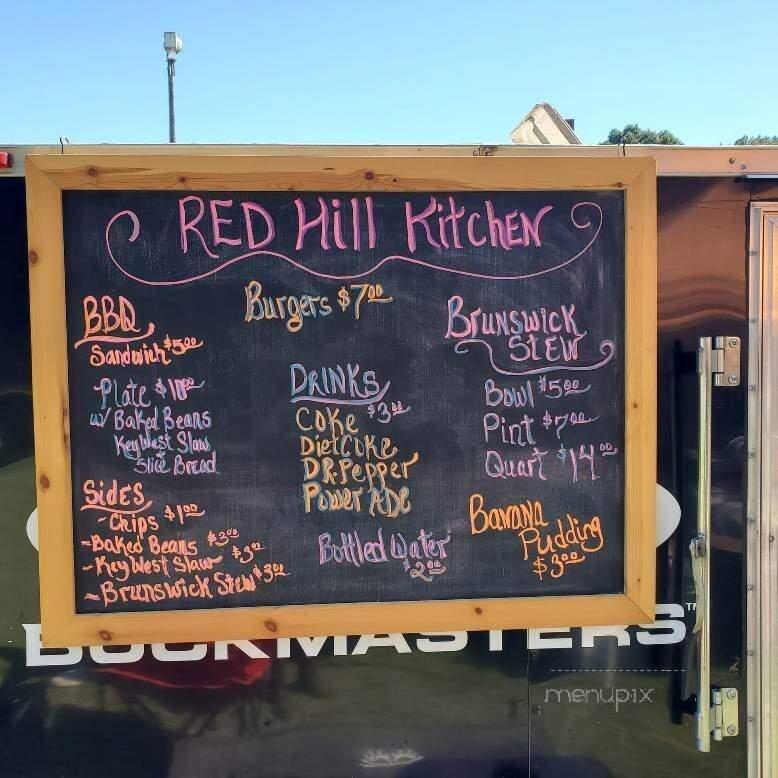 RED Hill Kitchen
BBQ
Sandwich $5.00
Plate $10.00
w/ Baked Beans
Key West Slaw
Slice Bread
Sides
~Chips $1.00
~Baked Beans $3.00
~Key West Slaw $3.00
~Brunswick Stew $3.00
Burgers $7.00
Drinks
$3.00
Coke
Diet Coke
DR. Pepper
PowerADE
Bottled Water
$2.00
Brunswick
Stew
Bowl $5.00
Pint $7.00
Quart $14.00
Banana
Pudding
$3.00
BUCKMASTERS™
menupix